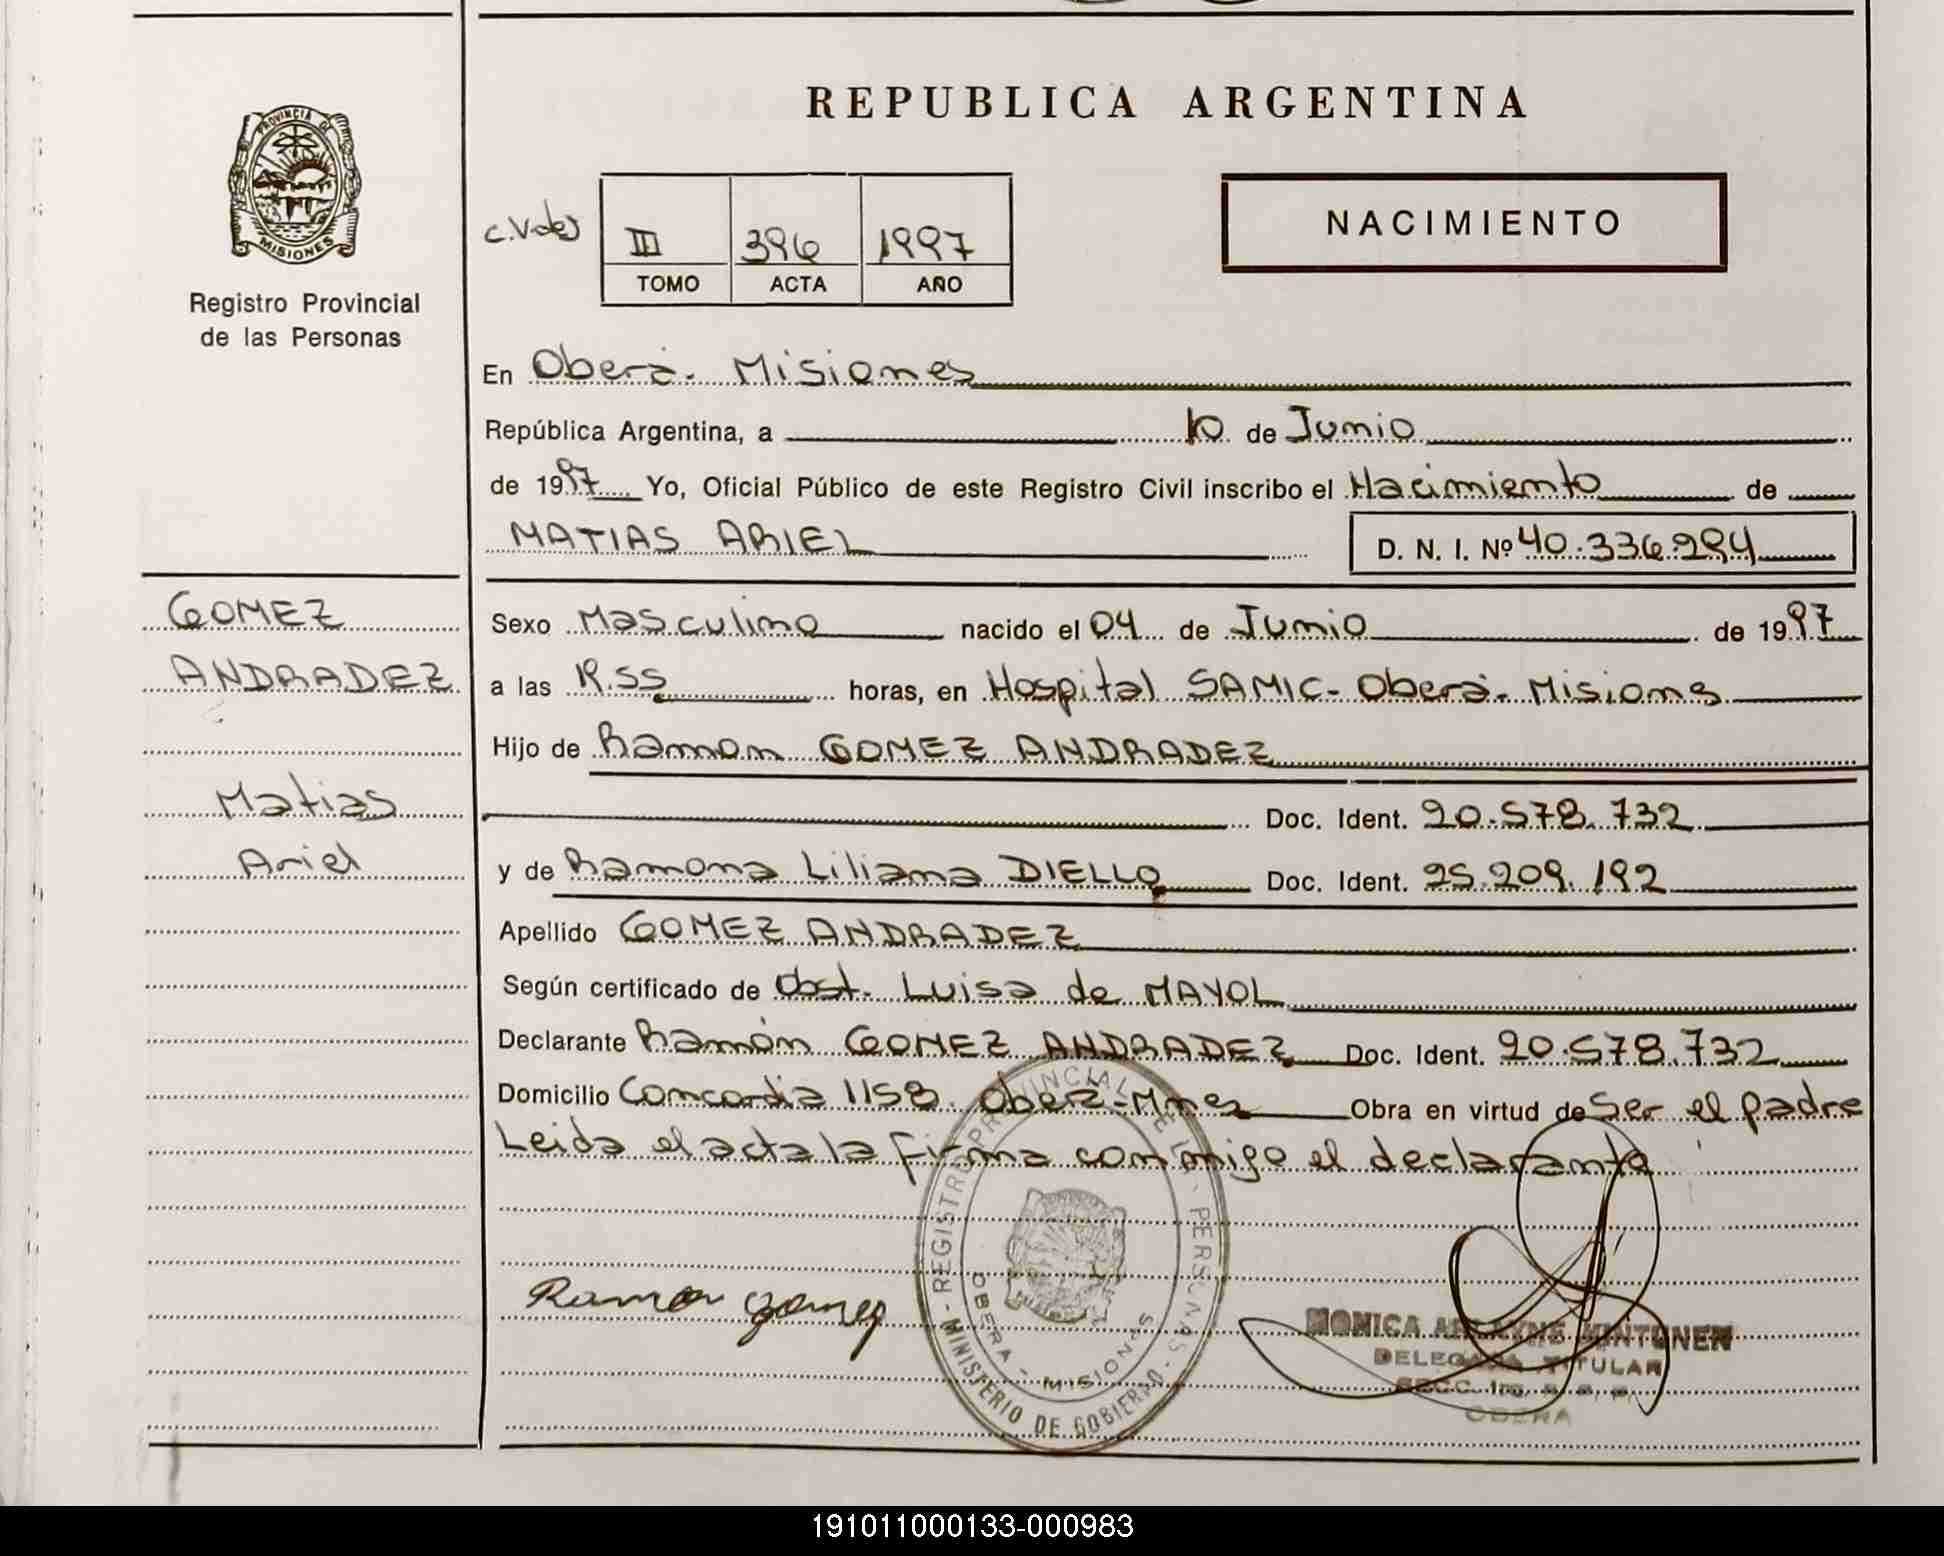 REPUBLICA ARGENTINA
PROVINCIA DE
MISIONES
Registro Provincial
de las Personas
III 396 1997
TOMO ACTA AÑO
NACIMIENTO
En Oberá. Misiones
República Argentina, a 10 de Junio
de 1997 Yo, Oficial Público de este Registro Civil inscribo el Nacimiento de
MATIAS ARIEL D. N. I. Nº 40.336.294
GOMEZ
ANDRADEZ
Matias
Ariel
Sexo Masculino nacido el 04 de Junio de 1997
a las horas, en Hospital SAMIC- Oberá. Misions
Hijo de Ramon GOMEZ ANDRADEZ
Doc. Ident. 20.578.732
y de Ramona Liliana DIELLO Doc. Ident. 25.209.192
Apellido GOMEZ ANDRADEZ
Según certificado de Obst. Luisa de MAYOL
Declarante Ramón GOMEZ ANDRADEZ Doc. Ident. 20.578.732
Domicilio Concordia 1158. Oberá-Mnes Obra en virtud de Ser el padre
Leida el acta la firma conmigo el declarante
Ramon Gomez
REGISTRO PROVINCIAL DE LA PERSONAS
MINISTERIO DE GOBIERNO
OBERA - MISIONES
MONICA
DELEGADA TITULAR
OBERA
191011000133-000983